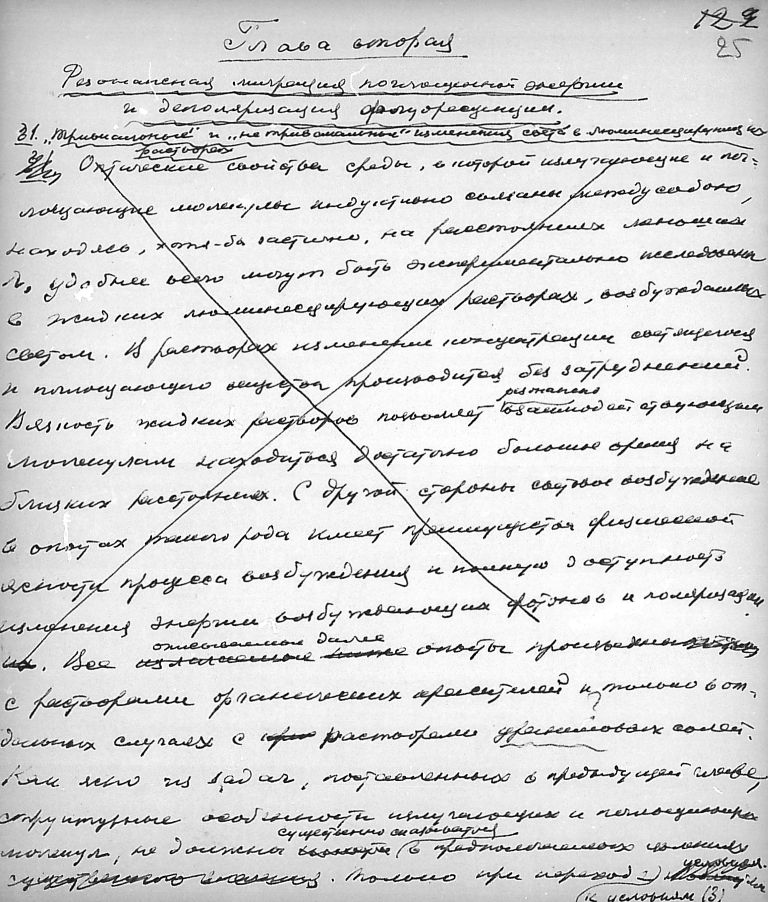 25
Глава вторая
Резонансная миграция поглощенной энергии
и деполяризация флуоресценции.
§1. „Тривиальные" и „нетривиальные" изменения света в люминесцирующих
растворах
Оптические свойства среды, в которой излучающие и пог-
лощающие молекулы индуктивно связаны между собою,
находясь, хотя-бы частично, на расстояниях меньших
λ, удобнее всего могут быть экспериментально исследованы
в жидких люминесцирующих растворах, возбуждаемых
светом. В растворах изменение концентрации светящегося
и поглощающего вещества производится без затруднений.
резонансно
Вязкость жидких растворов позволяет взаимодействующим
молекулам находиться достаточно большое время на
близких расстояниях. С другой стороны световое возбуждение
в опытах такого рода имеет преимущества физической
ясности процесса возбуждения и полную доступность
изменения энергии возбуждающих фотонов и поляризации
их. описываемые далее
Все излагаемые ниже опыты произведены
с растворами органических красителей и только в от-
дельных случаях с растворами ураниловых солей.
Как ясно из задач, поставленных в предыдущей главе,
структурные особенности излучающих и поглощающих
существенно сказываться
молекул, не должны в предполагаемых явлениях
существенного влияния. Только при переходе условия
к условиям (3)